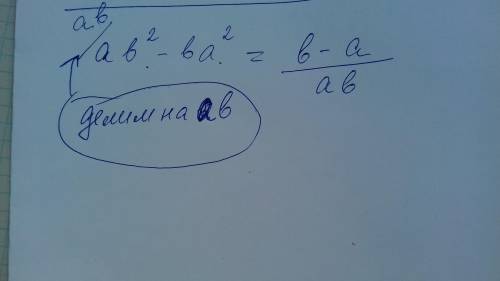 ab
ab² - ba² = b - a / ab
делим на ab